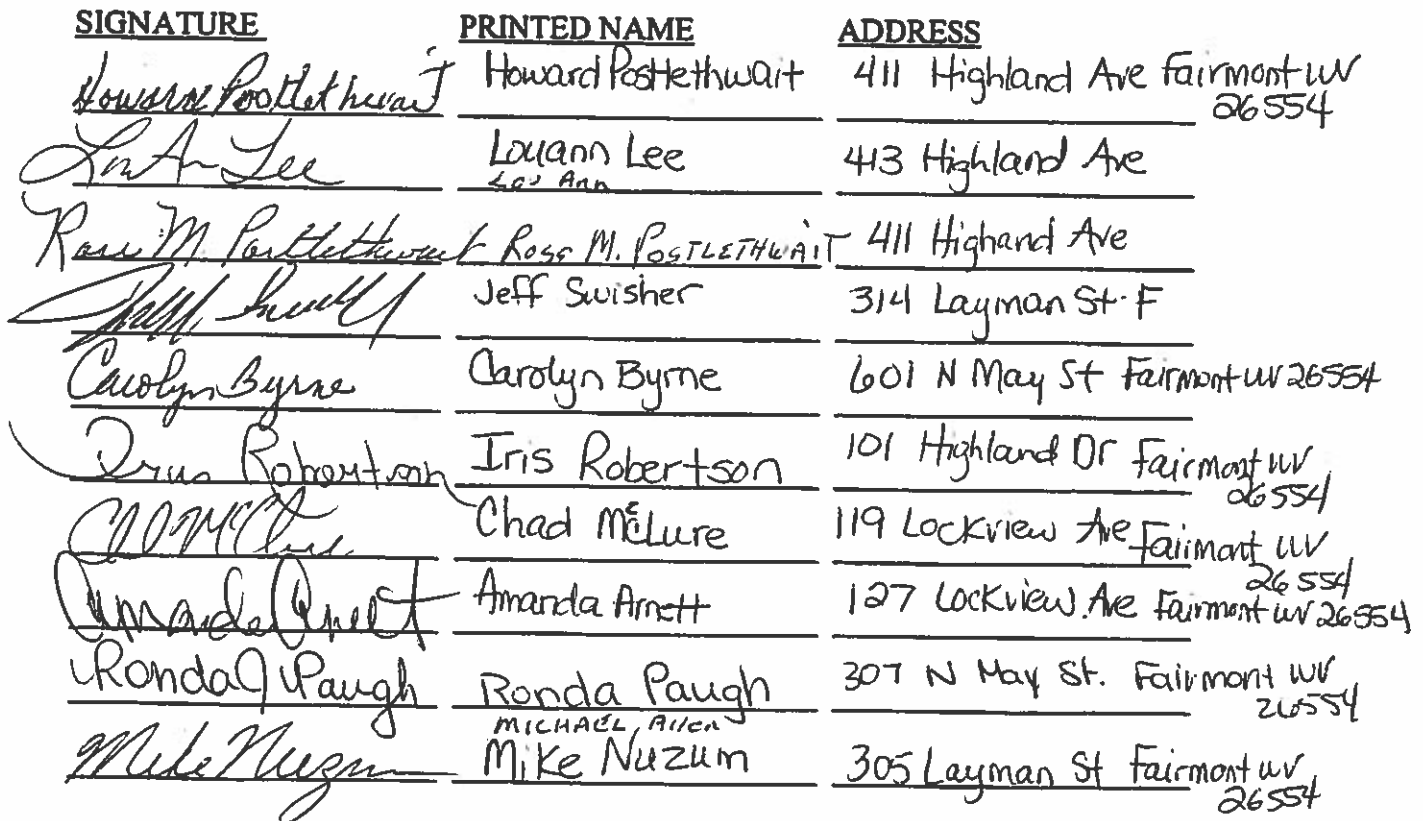 SIGNATURE PRINTED NAME ADDRESS
Howard Postlethwait Howard Postlethwait 411 Highland Ave Fairmont WV
26554
Lou Ann Lee Louann Lee 413 Highland Ave
Lou Ann
Ross M. Postlethwait Ross M. POSTLETHWAIT 411 Highand Ave
Jeff Swisher 314 Layman St. F
Carolyn Byrne Carolyn Byrne 601 N May St Fairmont WV 26554
Iris Robertson Iris Robertson 101 Highland Dr Fairmont WV
26554
Chad McLure 119 Lockview Ave Fairmont WV
26554
Amanda Arnett Amanda Arnett 127 Lockview Ave Fairmont WV 26554
Ronda J Paugh Ronda Paugh 307 N May St. Fairmont WV
26554
MICHAEL Allen
Mike Nuzum Mike Nuzum 305 Layman St Fairmont WV
26554